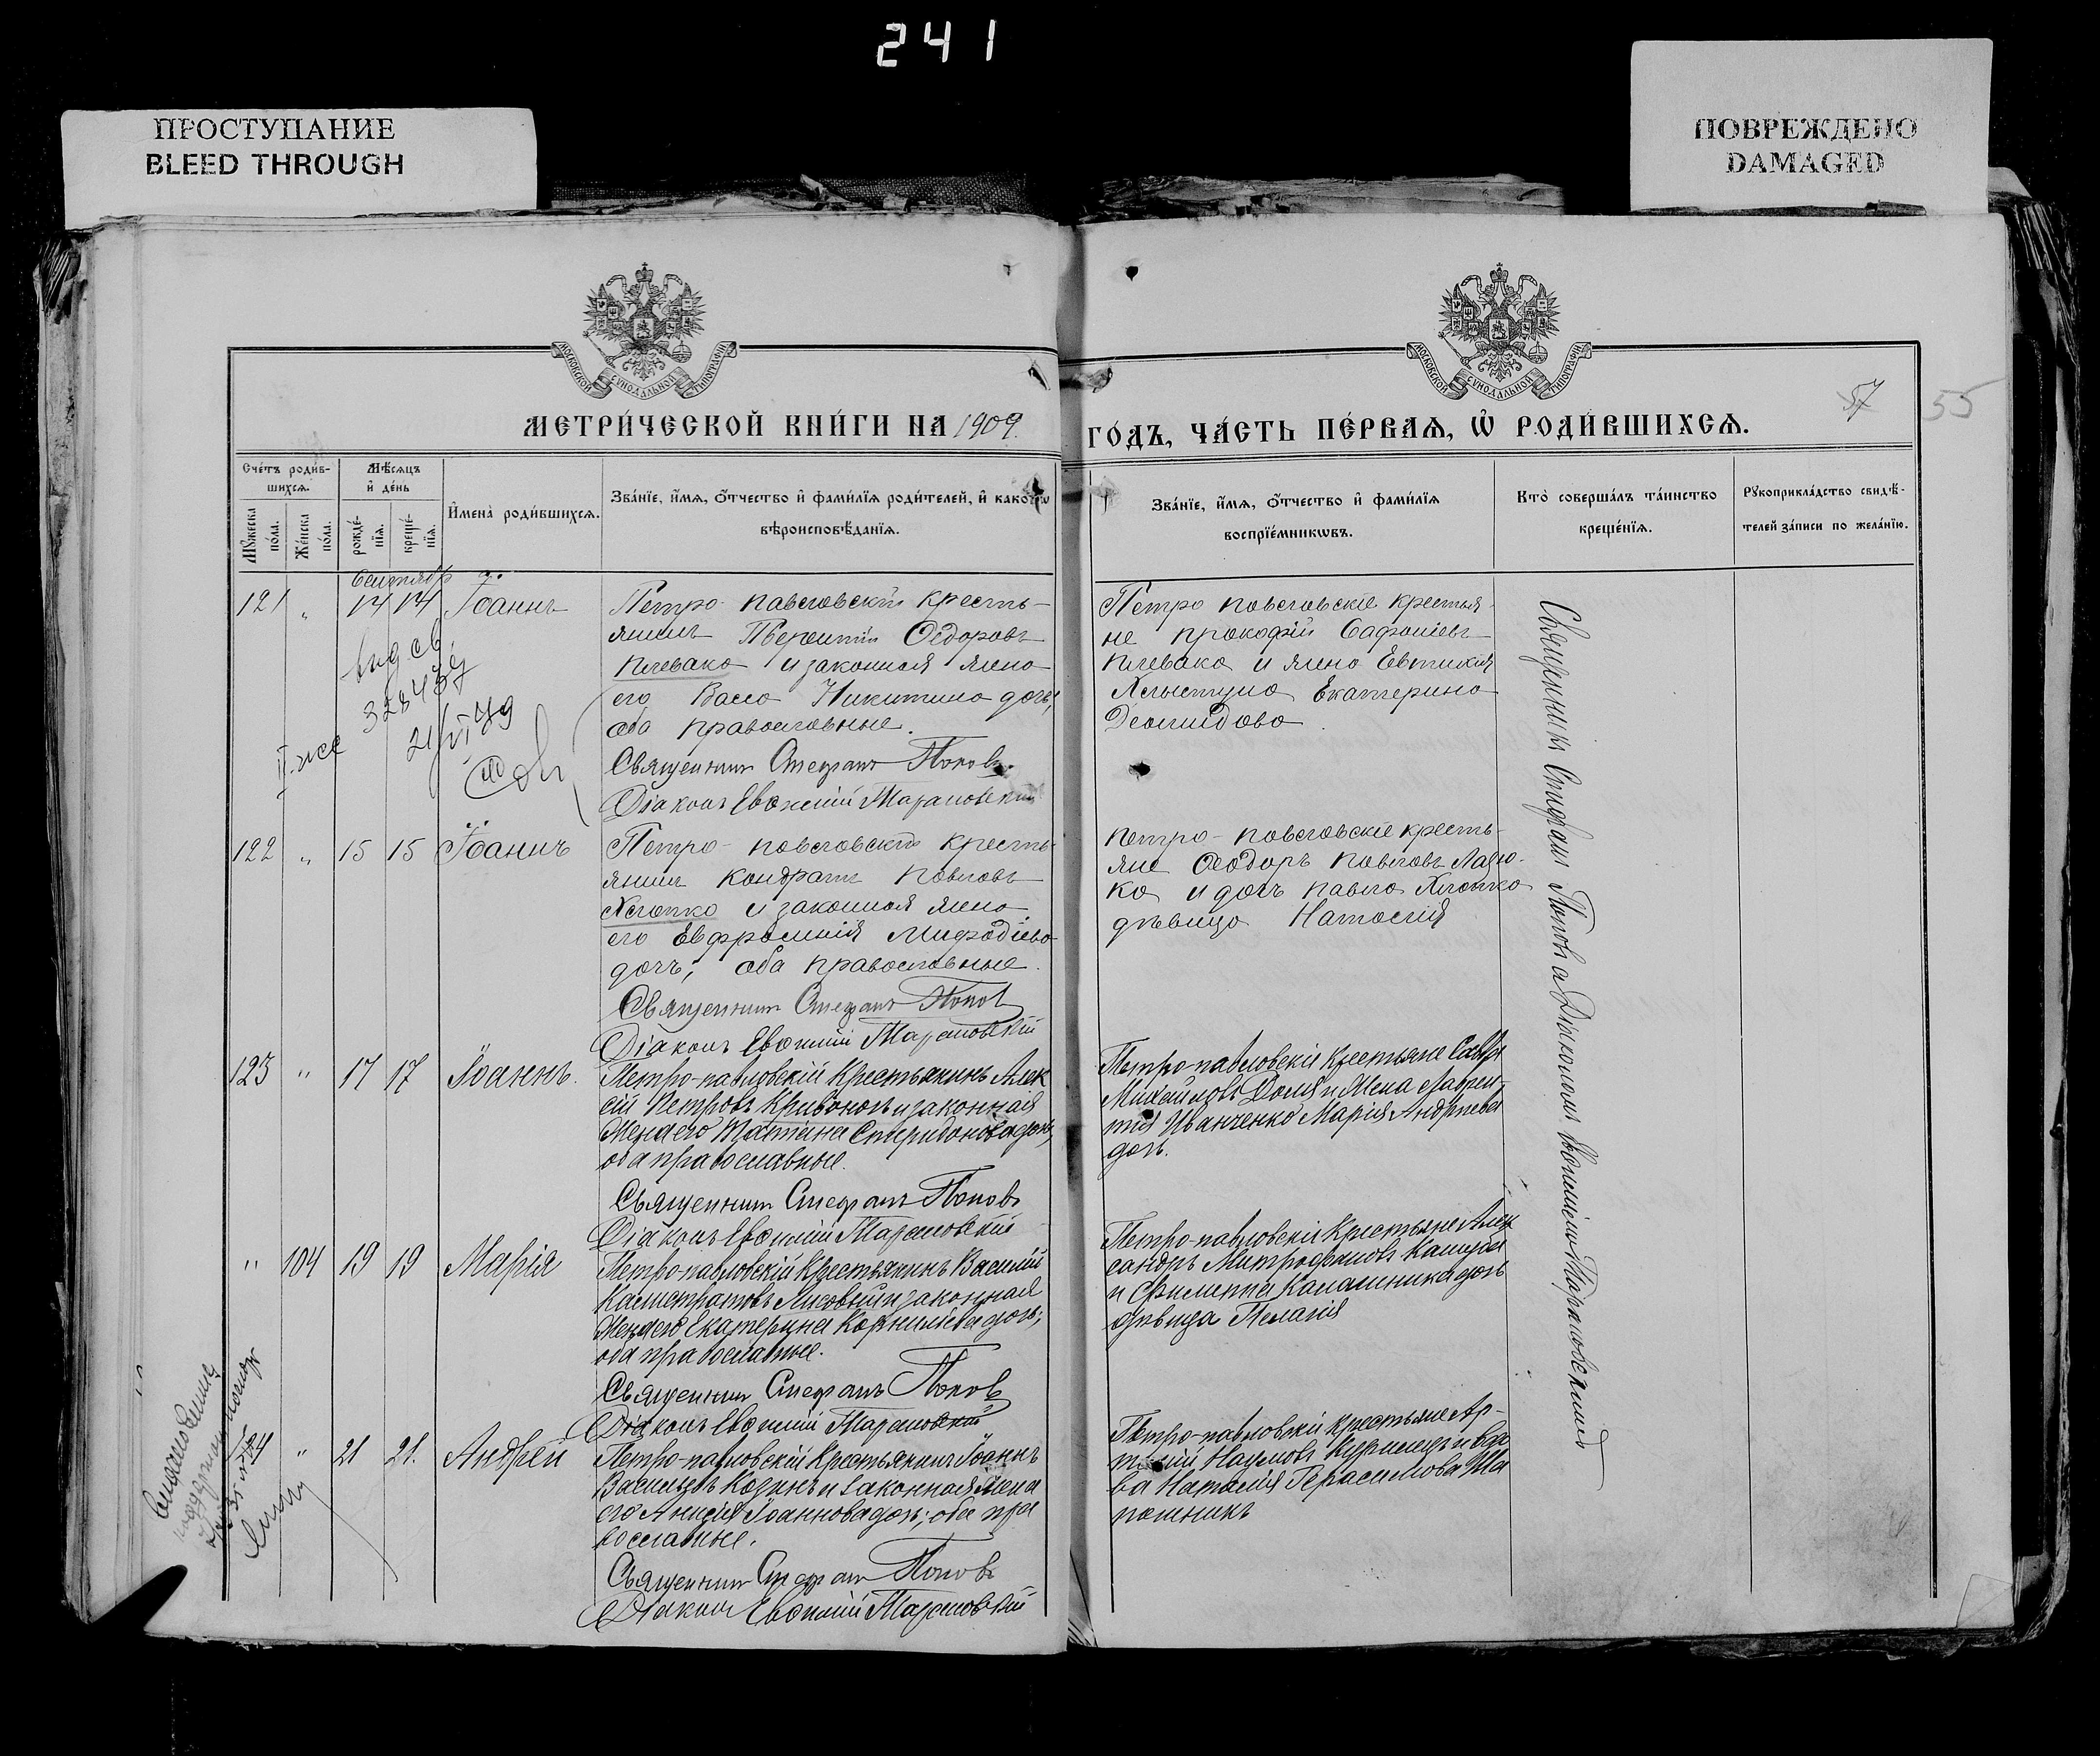 241
ПРОСТУПАНИЕ
BLEED THROUGH
ПОВРЕЖДЕНО
DAMAGED
МОСКОВСКОЙ СѴНОДАЛЬНОЙ ТИПОГРАФІИ
МОСКОВСКОЙ СѴНОДАЛЬНОЙ ТИПОГРАФІИ
57
55
МЕТРИ́ЧЕСКОЙ КНИ́ГИ НА 1909.
ГО́ДЪ, ЧА́СТЬ ПЕ́РВАѦ, Ѡ҆ РОДИ́ВШИХСѦ.
Сче́тъ роди́в-
шихсѧ.
Мꙋ́жеска по́ла.
Же́нска по́ла.
Мѣ́сѧцъ
и҆ де́нь
рожде́-
нїѧ.
креще́-
нїѧ.
И҆мена̀ роди́вшихсѧ.
Зва́нїе, и҆́мѧ, ѻ҆́тчество и҆ фами́лїѧ роди́телей, и҆ како́гѡ
вѣроисповѣ́данїѧ.
Зва́нїе, и҆́мѧ, ѻ҆́тчество и҆ фами́лїѧ
воспрїе́мникѡвъ.
Кто̀ соверша́лъ та́инство
креще́нїѧ.
Рꙋкоприкла́дство свидѣ́-
телей за́писи по жела́нїю.
Сентябр
121 " 14 14 Іоаннъ
Петро-павловскій кресть-
янинъ Ѳедоровъ
Плевако и законная жена
его Васса Никитина дочь,
оба православные.
Священникъ Стефанъ Поповъ
Діаконъ Евѳимій Тарановскій
Петро павловскіе крестья-
не Прокофій Сафоніевъ
Плевака и жена Евтихія
Хлыстуна Екатерина
Діомидова
122 " 15 15 Іоаннъ
Петро-павловскій кресть-
янинъ Кондратъ Павловъ
Хлопко и законная жена
его Евфросинія Мифодіева
дочь, оба православные.
Священникъ Стефанъ Поповъ
Діаконъ Евѳимій Тарановскій
Петро-павловскіе кресть-
яне Ѳеодоръ Павловъ Ладю-
ка и дочь Павла Хлопко
дѣвица Наталія
123 " 17 17 Іоаннъ.
Петро-павловскій Крестьянинъ Алек
сій Петровъ Кривоносъ и законная
Жена его Татіана Спиридонова дочь,
оба православные.
Священникъ Стефанъ Поповъ
Діаконъ Евѳимій Тарановскій
Петро-павловскіе крестьяне Савва
Михайловъ Доля и Жена Лаврен-
тія Иванченко Марія Андреева
дочь.
" 104 19 19 Марія
Петро-павловскій Крестьянинъ Василій
Калистратовъ Лисовый и законная
Жена его Екатерина Корниліева дочь;
оба православные.
Священникъ Стефанъ Поповъ
Діаконъ Евѳимій Тарановскій
Петро-павловскіе Крестьяне Алек
сандръ Митрофановъ Кацуба
и Филиппа Калашника дочь
дѣвица Пелагія
124 " 21 21. Андрей
Петро-павловскій Крестьянинъ Іоаннъ
Васильевъ Козинъ и законная жена
его Анисія Іоаннова дочь; оба пра
вославные.
Священникъ Стефанъ Поповъ
Діаконъ Евѳимій Тарановскій
Петро-павловскіе крестьяне Ар-
темій Наумовъ Куринецъ и вдо
ва Наталія Герасимова Ша
пошникъ
Священникъ Стефанъ Поповъ а Діакономъ Евѳиміемъ Тарановскимъ